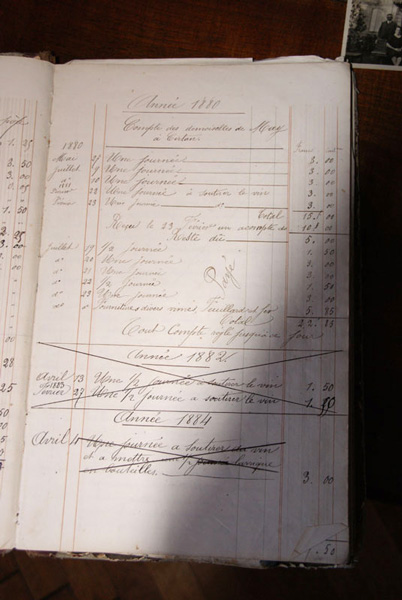 Année 1880
Compte des demoiselles de May
à
1880
Mai 27 Une journée 3. 00
Juillet 9 Une journée 3. 00
10 Une journée 3. 00
Février 22 Une journée à soutirer le vin 3. 00
23 Une journée 3. 00
Total 15. 00
Reçu le 23 Février un acompte de 10. 00
Reste dû 5. 00
Juillet 19 1/2 journée 1. 50
20 Une journée 3. 00
21 Une journée 3. 00
22 1/2 journée 1. 50
23 Une journée 3. 00
Fournitures divers Feuillard et 5. 25
Total 22. 25
Payé
Tout Compte réglé jusqu'à ce jour
Année 1882
Avril 13 Une 1/2 journée à soutirer le vin 1. 50
1883
Février 27 Une 1/2 journée a soutirer le vin 1. 50
Année 1884
Avril Une journée a soutirer du vin
et a mettre
en bouteilles 3. 00
1. 50